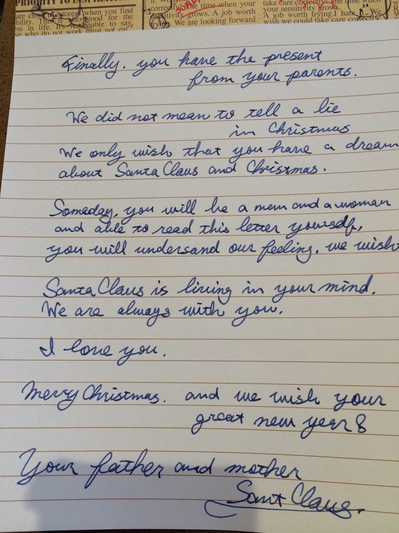 PRIORITY TO
when you find
good for the
able to say
time when your
activity grows. A job worth
We are looking forward
your sensitivity grow
A job worth trying.I
Finally, you have the present
from your parents.
We did not mean to tell a lie
in Christmus
We only wish that you have a dream
about Santa Claus and Christmas.
Someday, you will be a mom and a woman
and able to read this letter yourself,
you will undersand our feeling, we wish
Santa Claus is living in your mind.
We are always with you.
I love you.
Merry Christmas. and we wish your
great new year
Your father and mother
Sant Claus.